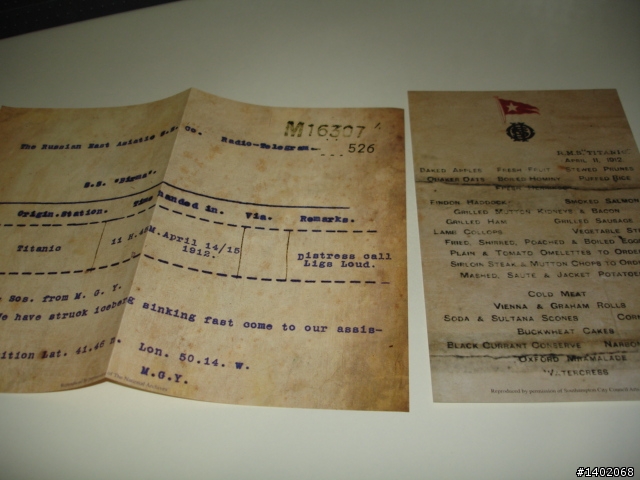 The Russian East Asiatic S.S. Co.
Radio-Telegram.
M16307
526
S.S. "Birma".
Origin.Station.
handed in.
Via.
Remarks.
Titanic
11 H.
M.April 14/15
1912.
Distress call
Ligs Loud.
Sos. from M. G. Y.
We have struck iceberg sinking fast come to our assis-
ition Lat. 41.46 n. Lon. 50.14. w.
M.G.Y.
R.M.S. "TITANIC"
APRIL 11, 1912.
BAKED APPLES FRESH FRUIT STEWED PRUNES
QUAKER OATS BOILED HOMINY PUFFED RICE
FRESH
FINDON HADDOCK SMOKED SALMON
GRILLED MUTTON KIDNEYS & BACON
GRILLED HAM GRILLED SAUSAGE
LAMB COLLOPS VEGETABLE ST
FRIED, SHIRRED, POACHED & BOILED EGGS
PLAIN & TOMATO OMELETTES TO ORDER
SIRLOIN STEAK & MUTTON CHOPS TO ORDE
MASHED, SAUTE & JACKET POTATO
COLD MEAT
VIENNA & GRAHAM ROLLS
SODA & SULTANA SCONES CORN
BUCKWHEAT CAKES
BLACK CURRANT CONSERVE NARBON
OXFORD MARMALADE
WATERCRESS
Reproduced by permission of Southampton City Council
#1402068